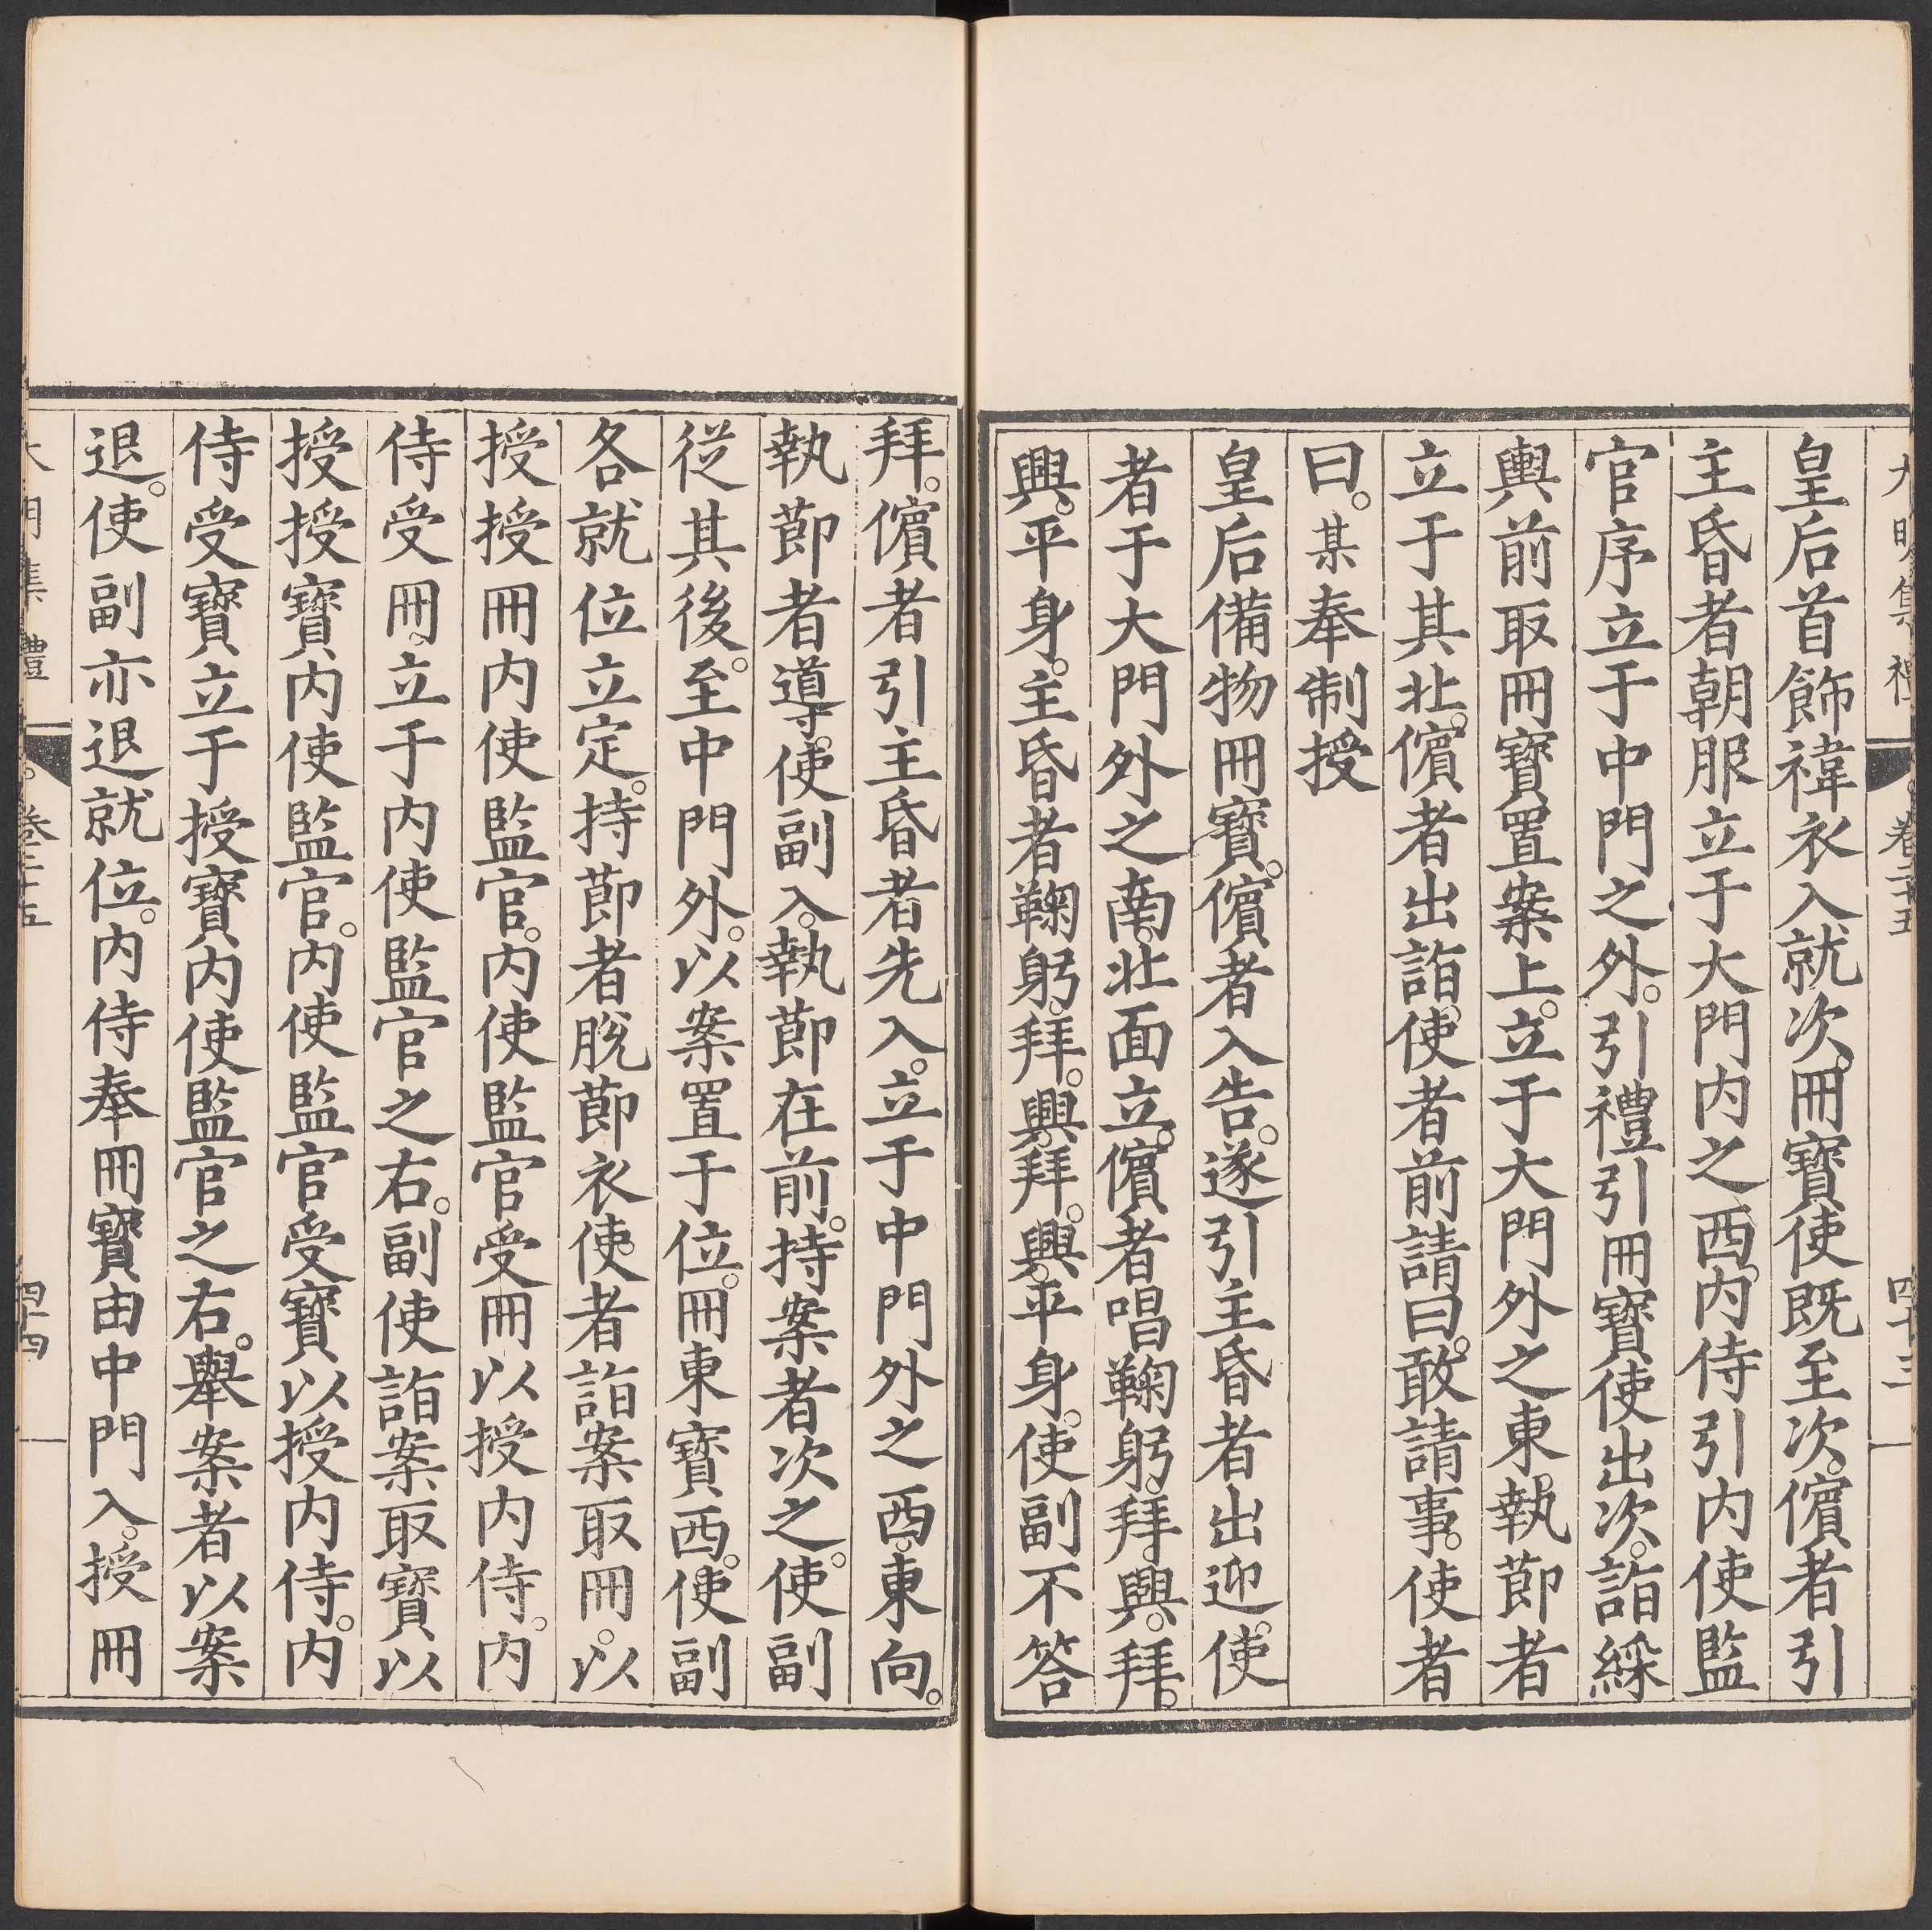 大明集禮 卷二十五 四十三
皇后首飾褘衣入就次。冊寶使既至次。儐者引
主昏者朝服立于大門内之西。内侍引内使監
官序立于中門之外。引禮引冊寶使出次。詣綵
輿前取冊寶置案上。立于大門外之東。執節者
立于其北。儐者出詣。使者前請曰。敢請事。使者
曰。某奉制授
皇后備物冊寶。儐者入告。遂引主昏者出迎。使
者于大門外之南。北面立。儐者唱鞠躬。拜。興。拜。
興。平身。主昏者鞠躬。拜。興。拜。興。平身。使副不答
拜。儐者引主昏者先入。立于中門外之西。東向。
執節者導。使副入。執節在前。持案者次之。使副
從其後。至中門外。以案置于位。冊東寶西。使副
各就位立定。持節者脫節衣。使者詣案取冊。以
授授冊内使監官。内使監官受冊以授内侍。内
侍受冊。立于内使監官之右。副使詣案取寶以
授授寶内使監官。内使監官受寶以授内侍。内
侍受寶立于授寶内使監官之右。舉案者以案
退。使副亦退就位。内侍奉冊寶由中門入。授冊
大明集禮 。卷二十五 四十四